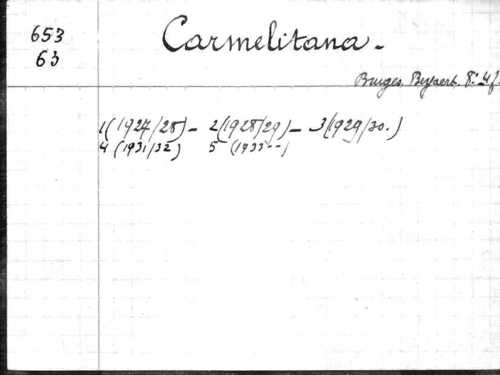 653
63
Carmelitana -
Bruges. Beyaert. 8° 4 f.
1(1927/28) - 2(1928/29) - 3(1929/30.)
4 (1931/32) 5 (1933--)